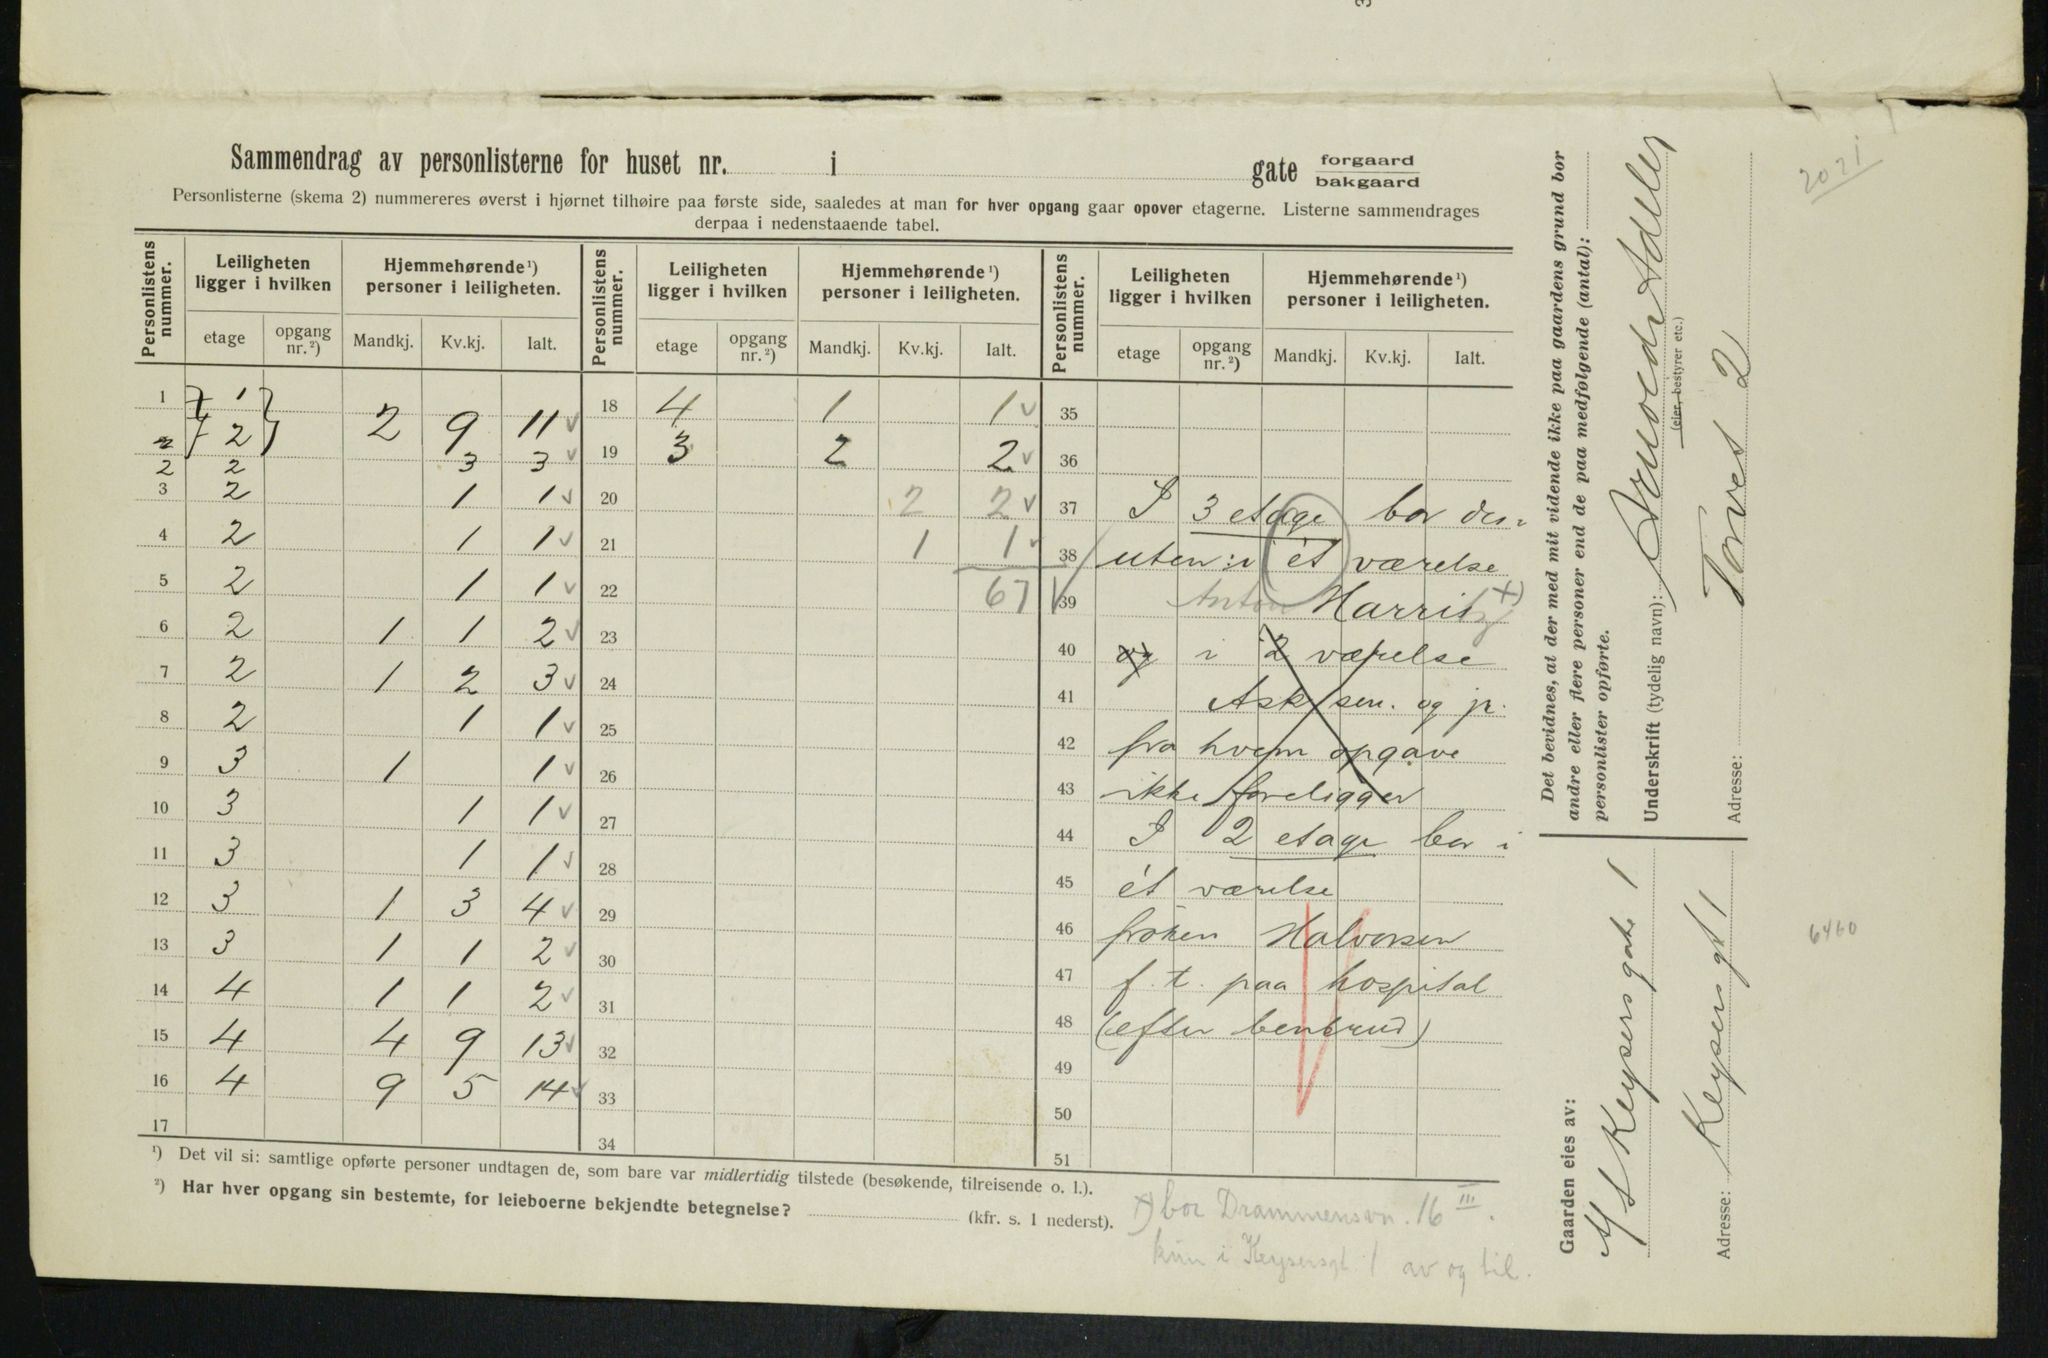 Sammendrag av personlisterne for huset nr. i gate forgaard
bakgaard
Personlisterne (skema 2) nummereres øverst i hjørnet tilhøire paa første side, saaledes at man for hver opgang gaar opover etagerne. Listerne sammendrages
derpaa i nedenstaaende tabel.
Personlistens nummer. Leiligheten ligger i hvilken Hjemmehørende¹) personer i leiligheten.
etage opgang nr.²) Mandkj. Kv.kj. Ialt.
1 1
2 2 2 9 11 ✓
2 2 3 3 ✓
3 2 1 1 ✓
4 2 1 1 ✓
5 2 1 1 ✓
6 2 1 1 2 ✓
7 2 1 2 3 ✓
8 2 1 1 ✓
9 3 1 1 ✓
10 3 1 1 ✓
11 3 1 1 ✓
12 3 1 3 4 ✓
13 3 1 1 2 ✓
14 4 1 1 2 ✓
15 4 4 9 13 ✓
16 4 9 5 14 ✓
17
Personlistens nummer. Leiligheten ligger i hvilken Hjemmehørende¹) personer i leiligheten.
etage opgang nr.²) Mandkj. Kv.kj. Ialt.
18 4 1 1 ✓
19 3 2 2 ✓
20 2 2 ✓
21 1 1 ✓
22 67 ✓
23
24
25
26
27
28
29
30
31
32
33
34
Personlistens nummer. Leiligheten ligger i hvilken Hjemmehørende¹) personer i leiligheten.
etage opgang nr.²) Mandkj. Kv.kj. Ialt.
35
36
37 I 3 etage bor des-
38 uten: i ét værelse
39 Anton Harritz x)
40 og i 2 værelse
41 Ask sen. og jr.
42 fra hvem opgave
43 ikke foreligger
44 I 2 etage bor i
45 ét værelse
46 frøken Halvorsen
47 f. t. paa hospital
48 (efter benbrud)
49
50
51
¹) Det vil si: samtlige opførte personer undtagen de, som bare var midlertidig tilstede (besøkende, tilreisende o. l.).
²) Har hver opgang sin bestemte, for leieboerne bekjendte betegnelse? (kfr. s. 1 nederst).
x) bor Drammensvn. 16 III.
kun i Keysersgt. 1 av og til.
Det bevidnes, at der med mit vidende ikke paa gaardens grund bor
andre eller flere personer end de paa medfølgende (antal):
personlister opførte.
Underskrift (tydelig navn): Adler
(eier, bestyrer etc.)
Adresse: Torvet 2
Gaarden eies av:
A/S Keysersgate 1
Adresse: Keysersgt 1
2021
6460